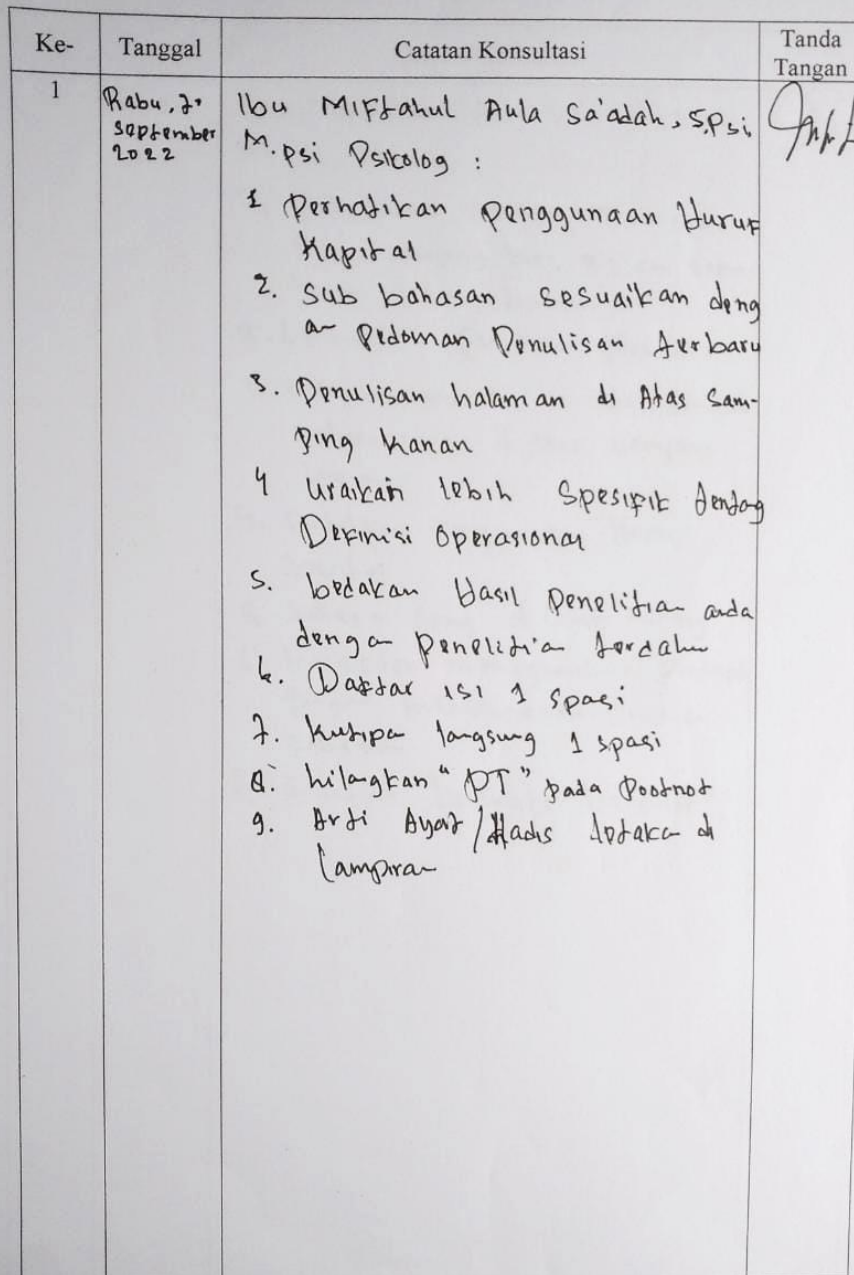 Ke- Tanggal Catatan Konsultasi Tanda Tangan
1 Rabu, 7.
September
2022
Ibu Miftahul Aula Sa'adah, S.Psi,
M.psi Psikolog :
1 Perhatikan penggunaan Huruf
Kapital
2. Sub bahasan sesuaikan deng
an Pedoman Penulisan terbaru
3. Penulisan halaman di Atas Sam-
ping kanan
4 Uraikan lebih Spesifik tentag
Definisi Operasional
5. bedakan Hasil Penelitian anda
dengan penelitian terdahu
6. Daftar isi 1 spasi
7. kutipa langsung 1 spasi
8. hilagkan "PT" pada Footnot
9. Arti Ayat / Hadis di
Lampiran